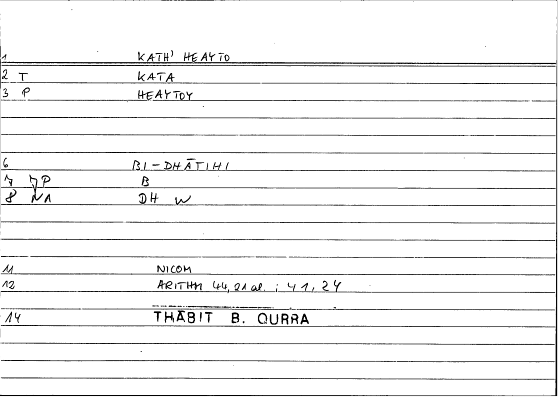 1 KATH' HEAYTO
2 T KATA
3 P HEAYTOY
6 BI-DHĀTIHI
7 7P B
8 N1 DH W
11 NICOM
12 ARITHM 44, 21 al. ; 41, 24
14 THĀBIT B. QURRA